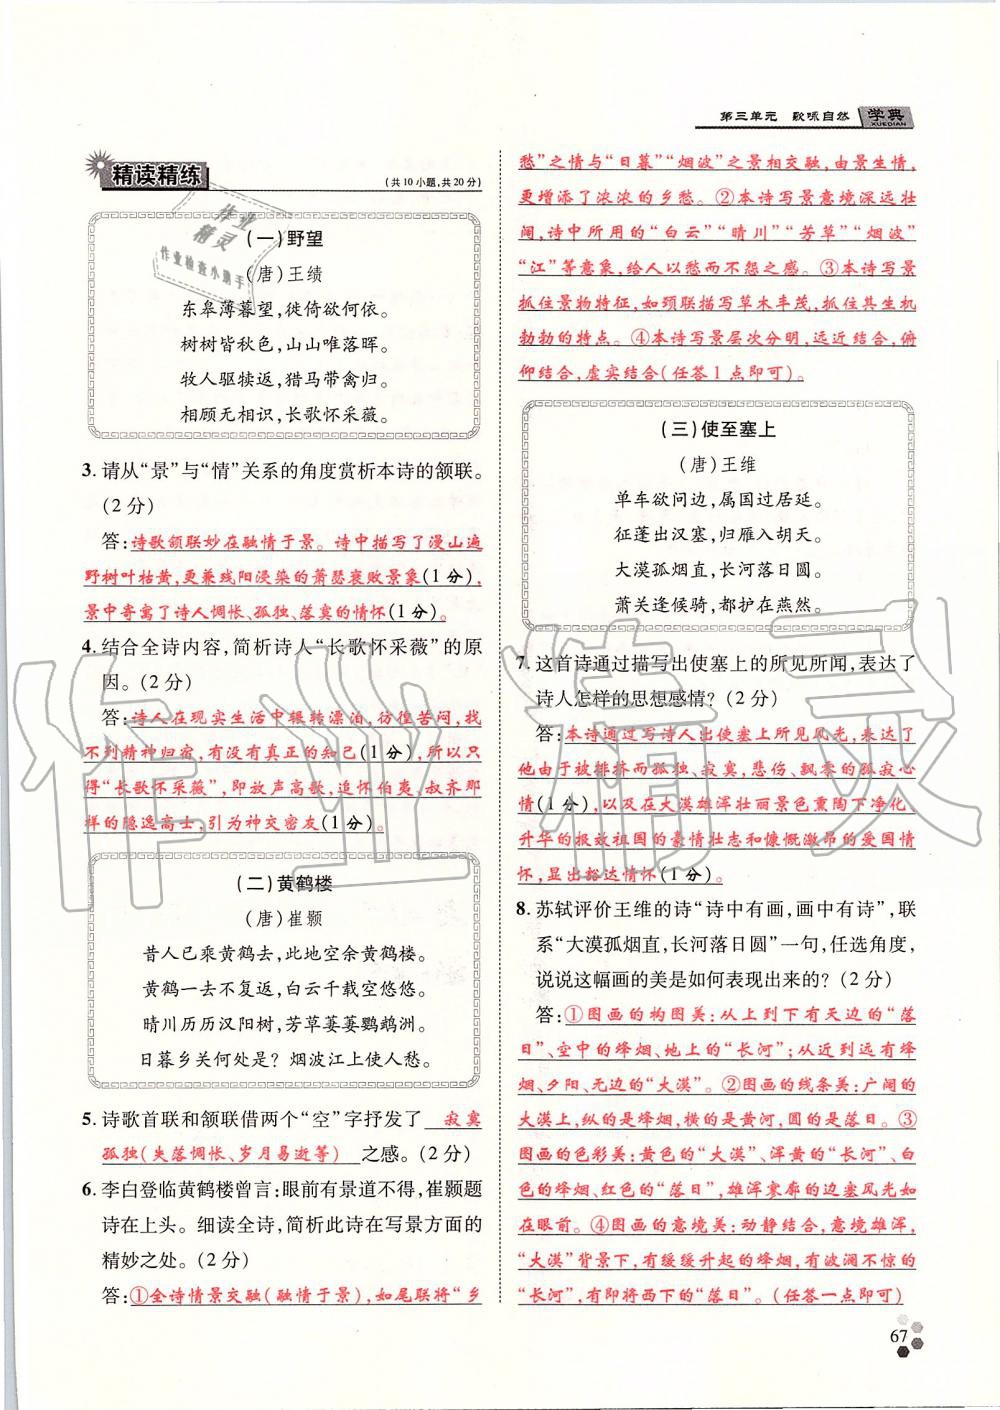 第三单元 歌咏自然 学典
XUEDIAN
精读精练
(共10小题,共20分)
(一)野望
(唐)王绩
东皋薄暮望,徙倚欲何依。
树树皆秋色,山山唯落晖。
牧人驱犊返,猎马带禽归。
相顾无相识,长歌怀采薇。
3. 请从“景”与“情”关系的角度赏析本诗的颔联。
(2分)
答:诗歌颔联妙在融情于景。诗中描写了漫山遍
野树叶枯黄,更兼残阳浸染的萧瑟衰败景象(1分),
景中寄寓了诗人惆怅、孤独、落寞的情怀(1分)。
4. 结合全诗内容,简析诗人“长歌怀采薇”的原
因。(2分)
答:诗人在现实生活中辗转漂泊,彷徨苦闷,找
不到精神归宿,有没有真正的知己(1分),所以只
得“长歌怀采薇”,即放声高歌,追怀伯夷、叔齐那
样的隐逸高士,引为神交密友(1分)。
(二)黄鹤楼
(唐)崔颢
昔人已乘黄鹤去,此地空余黄鹤楼。
黄鹤一去不复返,白云千载空悠悠。
晴川历历汉阳树,芳草萋萋鹦鹉洲。
日暮乡关何处是?烟波江上使人愁。
5. 诗歌首联和颔联借两个“空”字抒发了 寂寞
孤独(失落惆怅、岁月易逝等) 之感。(2分)
6. 李白登临黄鹤楼曾言:眼前有景道不得,崔颢题
诗在上头。细读全诗,简析此诗在写景方面的
精妙之处。(2分)
答:①全诗情景交融(融情于景),如尾联将“乡
愁”之情与“日暮”“烟波”之景相交融,由景生情,
更是增添了浓浓的乡愁。②本诗写景意境深远壮
阔,诗中所用的“白云”“晴川”“芳草”“烟波”
“江”等意象,给人以愁而不怨之感。③本诗写景
抓住景物特征,如颈联描写草木丰茂,抓住其生机
勃勃的特点。④本诗写景层次分明,远近结合,俯
仰结合,虚实结合(任答1点即可)。
(三)使至塞上
(唐)王维
单车欲问边,属国过居延。
征蓬出汉塞,归雁入胡天。
大漠孤烟直,长河落日圆。
萧关逢候骑,都护在燕然。
7. 这首诗通过描写出使塞上的所见所闻,表达了
诗人怎样的思想感情?(2分)
答:本诗通过写诗人出使塞上所见风光,表达了
他由于被排挤而孤独、寂寞,悲伤、飘零的孤寂心
情(1分),以及在大漠雄浑壮丽景色熏陶下净化、
升华的报效祖国的豪情壮志和慷慨激昂的爱国情
怀,显出豁达情怀(1分)。
8. 苏轼评价王维的诗“诗中有画,画中有诗”,联
系“大漠孤烟直,长河落日圆”一句,任选角度,
说说这幅画的美是如何表现出来的?(2分)
答:①图画的构图美:从上到下有天边的“落
日”、空中的烽烟、地上的“长河”;从近到远有烽
烟、夕阳、无边的“大漠”。②图画的线条美:广阔的
大漠上,纵的是烽烟,横的是黄河,圆的是落日。③
图画的色彩美:黄色的“大漠”、浑黄的“长河”、白
色的烽烟、红色的“落日”,雄浑寥廓的边塞风光如
在眼前。④图画的意境美:动静结合,意境雄浑,
“大漠”背景下,有缓缓升起的烽烟,有波澜不惊的
“长河”,有即将西下的“落日”。(任答一点即可)
67
作业
精灵
作业检查小助手
作业精灵